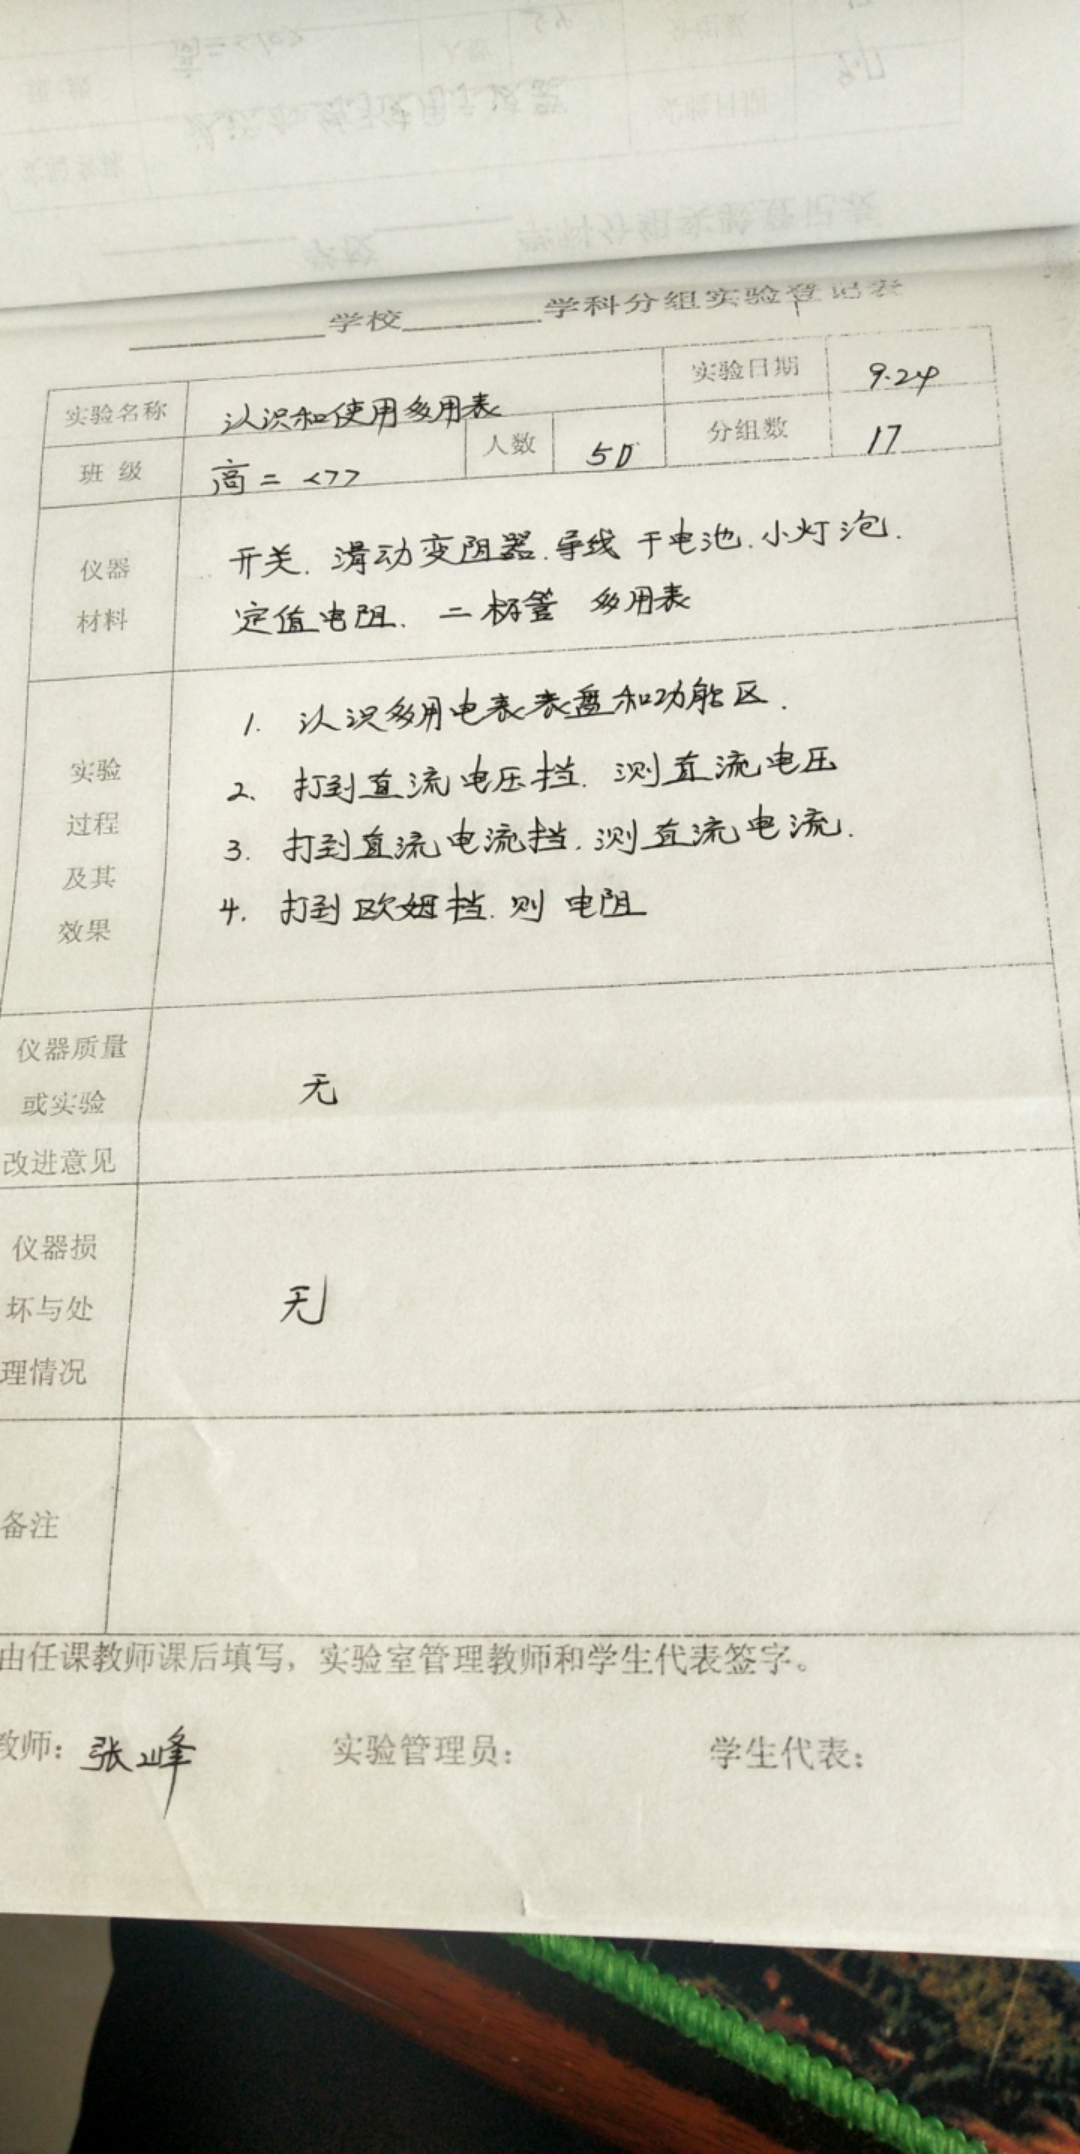 学校 学科分组实验登记表
实验名称 认识和使用多用表 实验日期 9.24
班 级 高二 <77 人数 50 分组数 17
仪器
材料
开关. 滑动变阻器. 导线 干电池. 小灯泡.
定值电阻. 二极管 多用表
实验
过程
及其
效果
1. 认识多用电表表盘和功能区.
2. 打到直流电压挡. 测直流电压
3. 打到直流电流挡. 测直流电流.
4. 打到欧姆挡. 则电阻
仪器质量
或实验
改进意见
无
仪器损
坏与处
理情况
无
备注
由任课教师课后填写，实验室管理教师和学生代表签字。
教师：张峰 实验管理员： 学生代表：